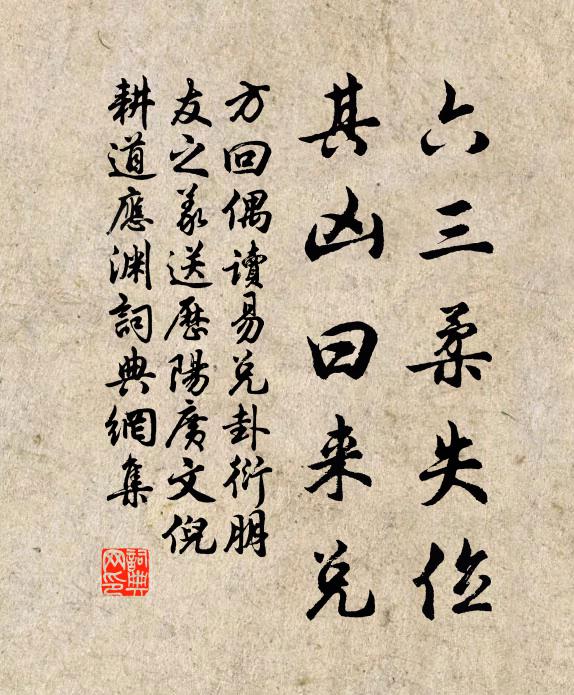 六三柔失位
其凶曰来兑
方回偶讀易兑卦衍朋
友之義送歷陽廣文倪
耕道應渊詞典網集
詞典網印